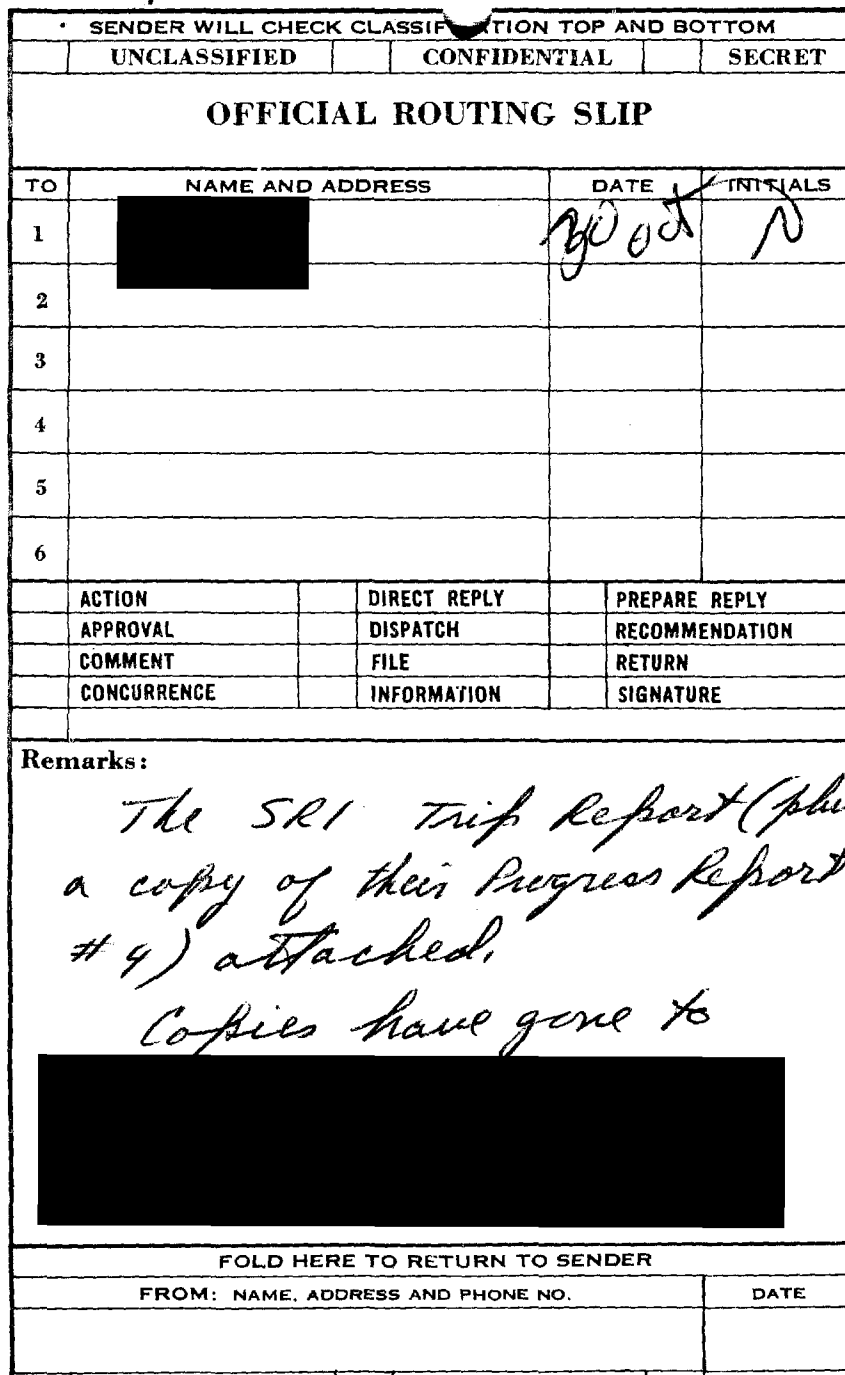 SENDER WILL CHECK CLASSIF TION TOP AND BOTTOM
UNCLASSIFIED CONFIDENTIAL SECRET
OFFICIAL ROUTING SLIP
TO NAME AND ADDRESS DATE INITIALS
1 30 oct
2
3
4
5
6
ACTION DIRECT REPLY PREPARE REPLY
APPROVAL DISPATCH RECOMMENDATION
COMMENT FILE RETURN
CONCURRENCE INFORMATION SIGNATURE
Remarks:
The SRI Trip Report (plu
a copy of their Progress Report
# 4) attached.
Copies have gone to
FOLD HERE TO RETURN TO SENDER
FROM: NAME, ADDRESS AND PHONE NO. DATE